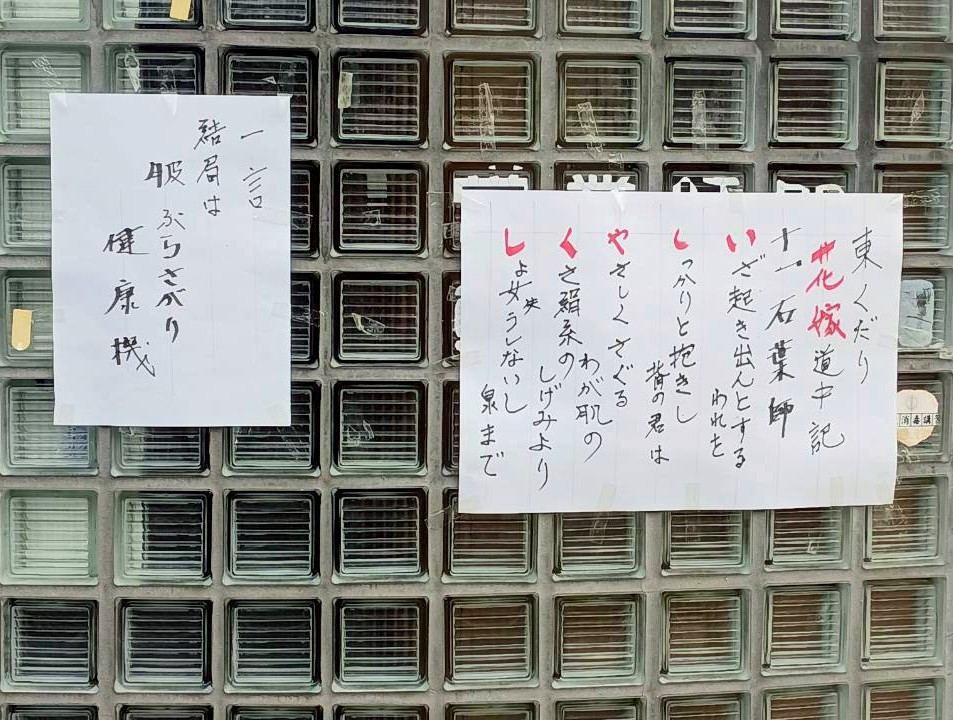 東くだり
花嫁道中記
十一 石葉師
いざ起き出んとする
われを
しっかりと抱きし
背の君は
やさしくさぐる
わが肌の
くさ絹糸の
しげみより
しょ女うしないし
失
泉まで
一言
結局は
ぶらさがり
健康機